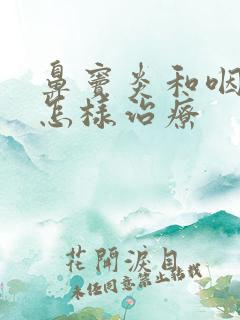 鼻窦炎和咽
怎樣治療
花開淚目
未经同意禁止转载